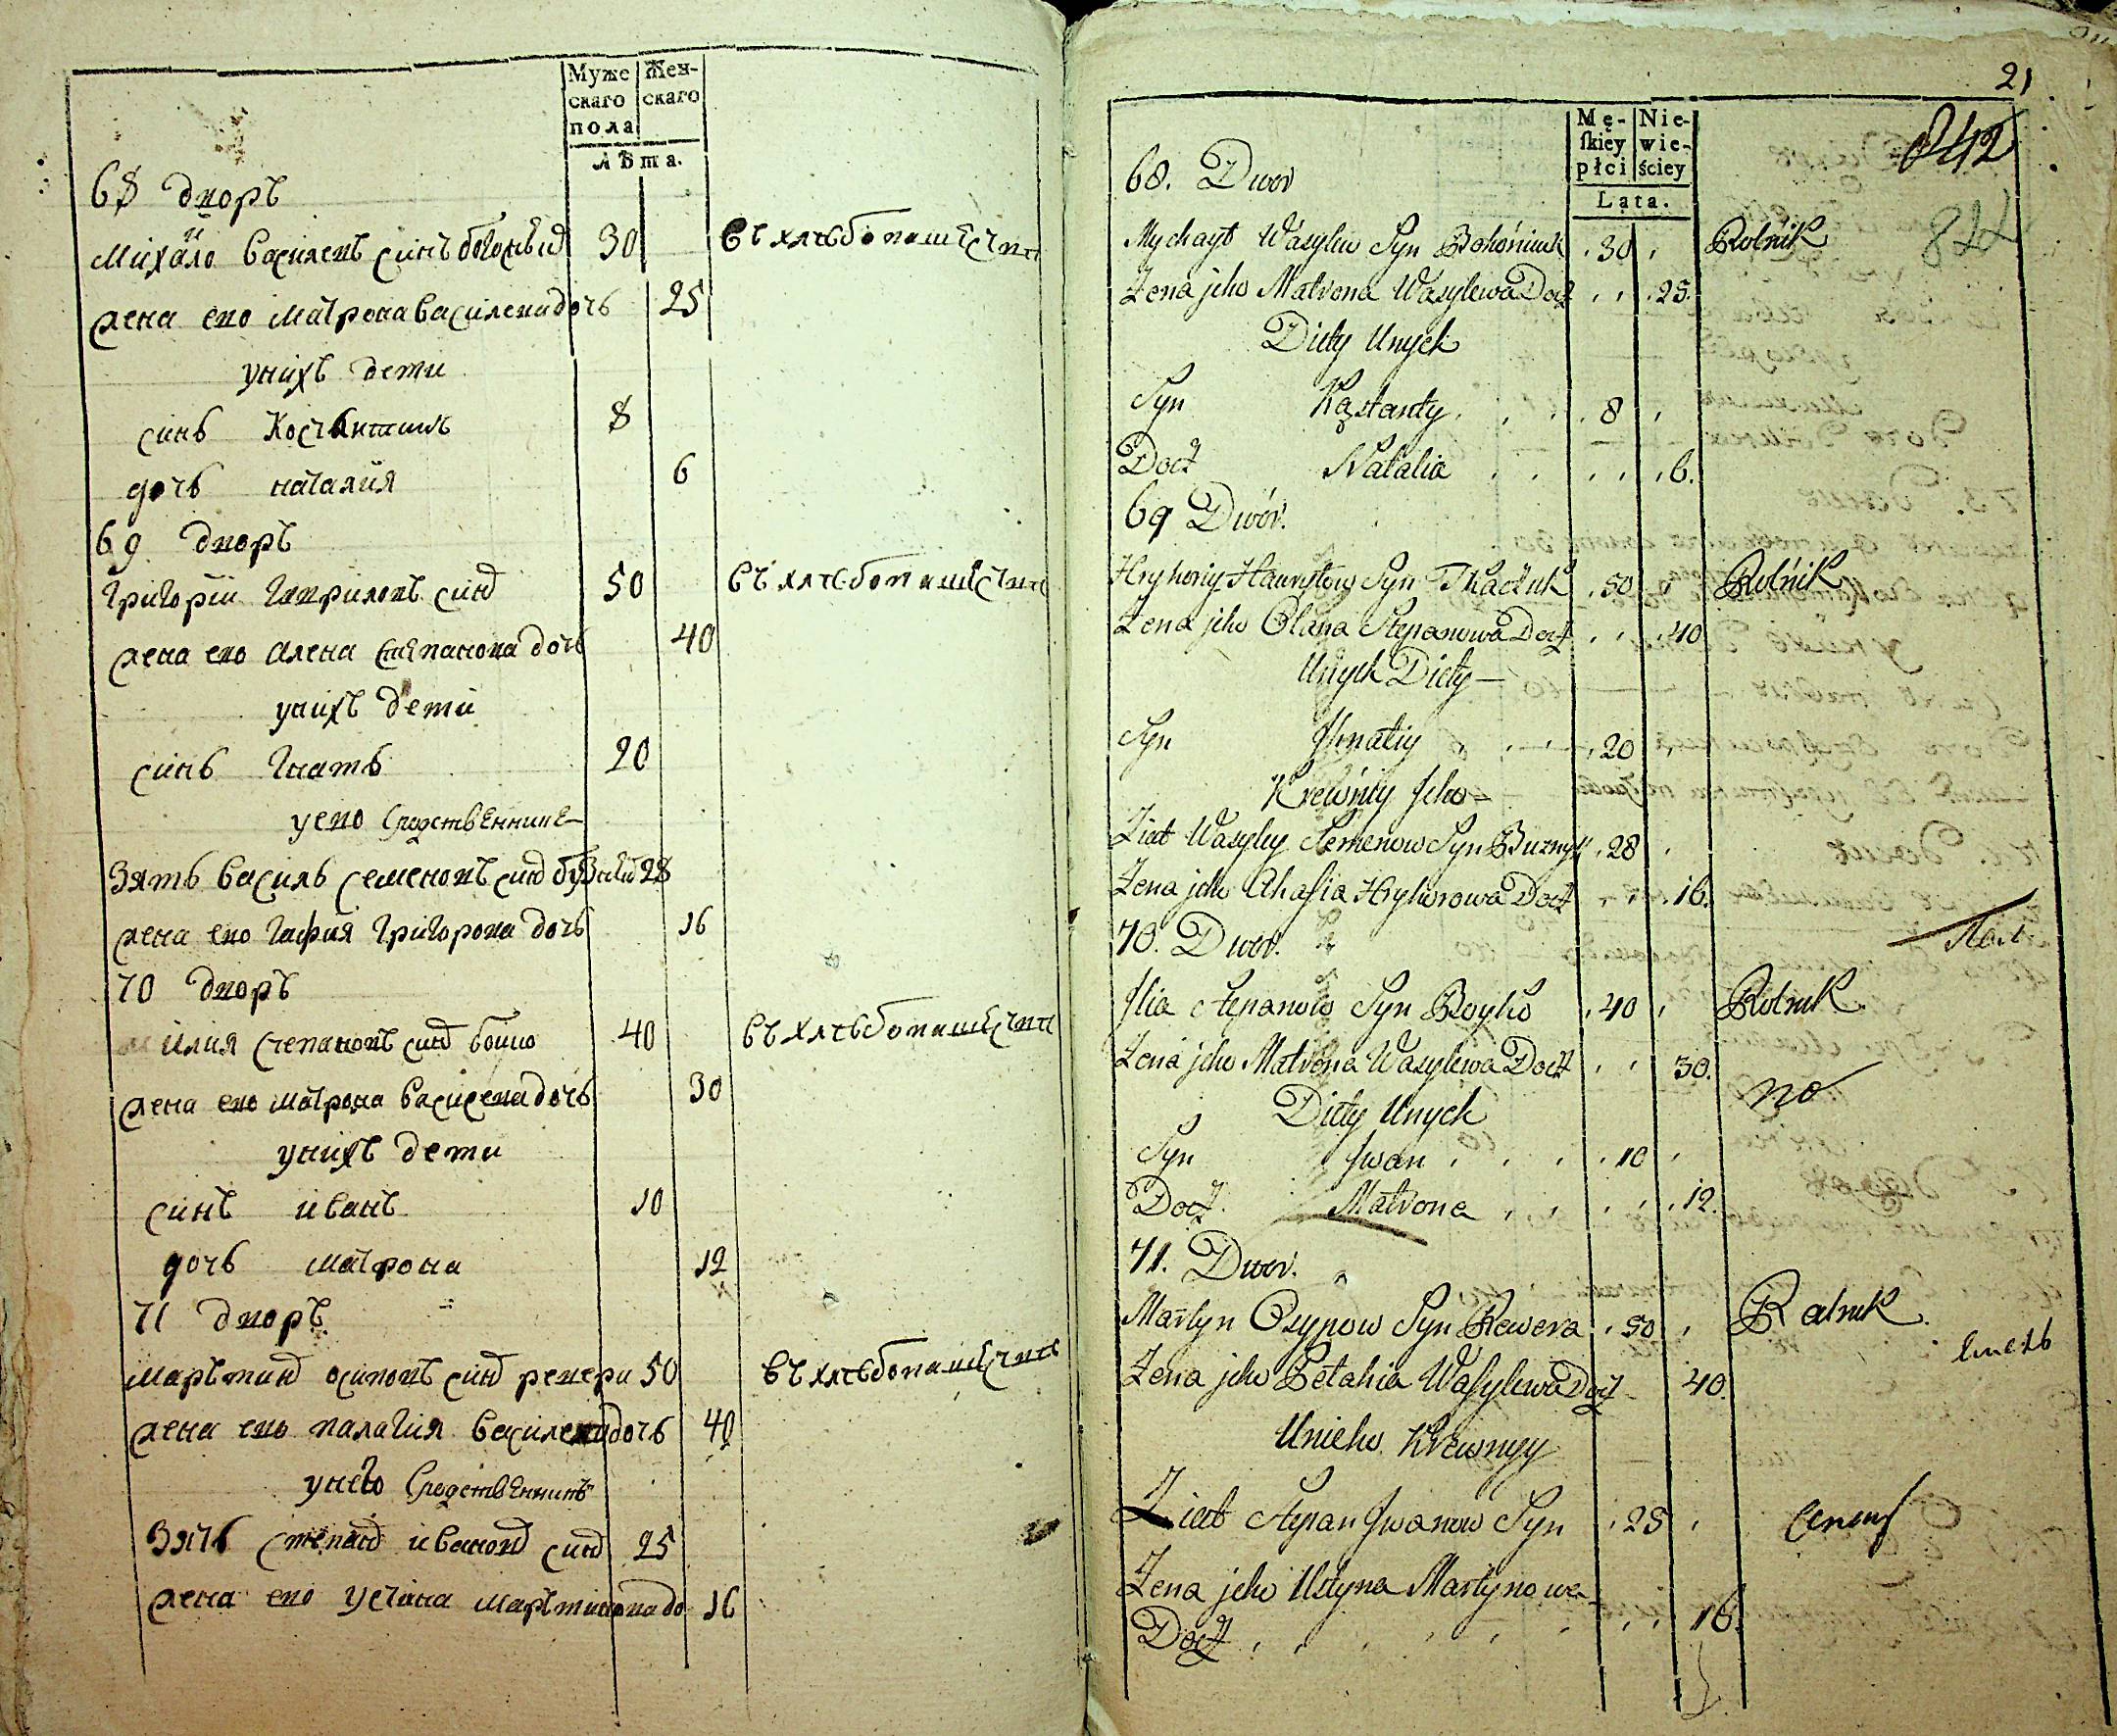 Муже Жен-
скаго скаго
пола
лѣта.
68 дворъ
Михайло Василевъ синъ 30 въ хлѣбопашестве
жена его матрона василева дочь 25
унихъ дети
синъ Костантинъ 8
дочь наталия 6
69 дворъ
григорий гавриловъ синъ 50 въ хлѣбопашестве
жена его алена степанова дочь 40
унихъ дети
синъ гнатъ 20
уево сродственники
зять василь семеновъ синъ 28
жена его гафия григорова дочь 16
70 дворъ
илия степановъ синъ бойко 40 въ хлѣбопашестве
жена его матрона василева дочь 30
унихъ дети
синъ иванъ 10
дочь матрона 12
71 дворъ
мартинъ осиповъ синъ ревера 50 въ хлѣбопашестве
жена его палагия василева дочь 40
унего сродственникъ
зять степанъ ивановъ синъ 25
жена его устина мартинова до 16
21
842
Mę- Nie-
ſkiey wie-
płci ściey
Lata.
822
68. Dwor
Mychayło Wasylew Syn Bohoniuk 30 Rolnik
Żena jeho Matrona Wasylewa Docz 25.
Dity Unych
Syn Kostanty 8
Docz Natalia 6.
69 Dwór.
Hryhoriy Hawryłow Syn Tkaczuk 50 Rolnik
Żena jeho Olana Stepanowa Docz 40
Unych Dity
Syn Ihnatiy 20
Krewniy Jeho
Ziat Wasyly Semenow Syn Buzny 28
Żena jeho Ahafia Hryhorowa Docz 16.
70. Dwor.
Ilia Stepanow Syn Boyko 40 Rolnik
Żena jeho Matrona Wasylewa Docz 30.
no
Dity Unych
Syn Iwan 10
Docz Matrona 12.
71. Dwor.
Martyn Osypow Syn Rewera 50 Rolnik
Żena jeho Petahia Wasylewa Docz 40.
Unieho Krewnyy
Ziat Stepan Iwanow Syn 25
Żena jeho Ustyna Martynowa
Docz 16.